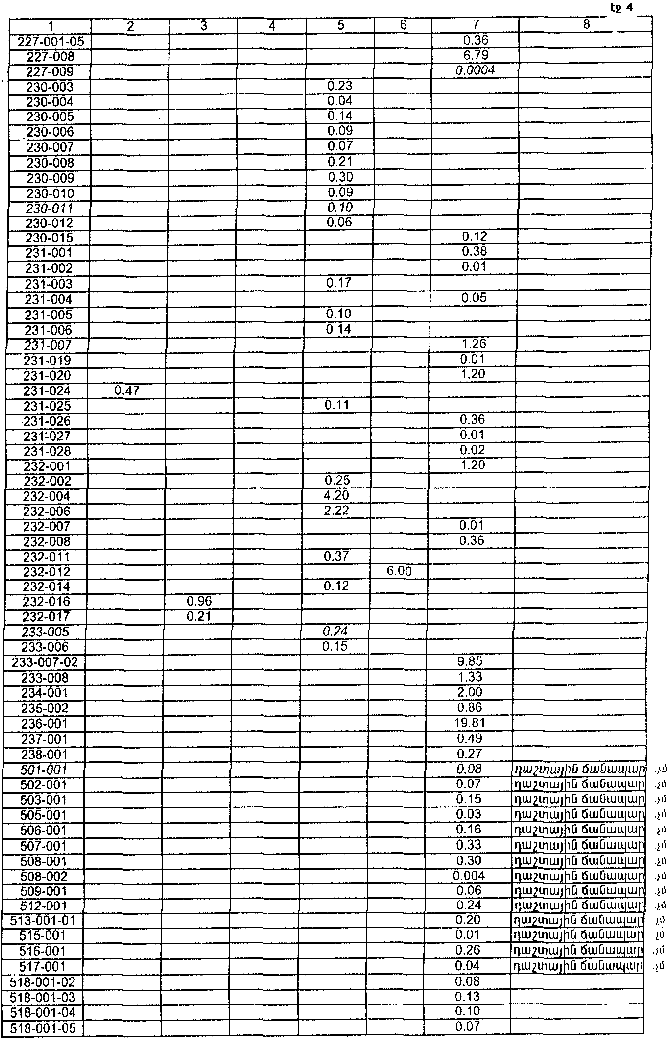 էջ 4
1 2 3 4 5 6 7 8
227-001-05 0.36
227-008 6.79
227-009 0.0004
230-003 0.23
230-004 0.04
230-005 0.14
230-006 0.09
230-007 0.07
230-008 0.21
230-009 0.30
230-010 0.09
230-011 0.10
230-012 0.06
230-015 0.12
231-001 0.38
231-002 0.01
231-003 0.17
231-004 0.05
231-005 0.10
231-006 0.14
231-007 1.26
231-019 0.01
231-020 1.20
231-024 0.47
231-025 0.11
231-026 0.36
231-027 0.01
231-028 0.02
232-001 1.20
232-002 0.25
232-004 4.20
232-006 2.22
232-007 0.01
232-008 0.36
232-011 0.37
232-012 6.00
232-014 0.12
232-016 0.96
232-017 0.21
233-005 0.24
233-006 0.15
233-007-02 9.85
233-008 1.33
234-001 2.00
235-002 0.86
236-001 19.81
237-001 0.49
238-001 0.27
501-001 0.08 դաշտային ճանապար
502-001 0.07 դաշտային ճանապար
503-001 0.15 դաշտային ճանապար
505-001 0.03 դաշտային ճանապար
506-001 0.16 դաշտային ճանապար
507-001 0.33 դաշտային ճանապար
508-001 0.30 դաշտային ճանապար
508-002 0.004 դաշտային ճանապար
509-001 0.06 դաշտային ճանապար
512-001 0.24 դաշտային ճանապար
513-001-01 0.20 դաշտային ճանապար
515-001 0.01 դաշտային ճանապար
516-001 0.26 դաշտային ճանապար
517-001 0.04 դաշտային ճանապար
518-001-02 0.08
518-001-03 0.13
518-001-04 0.10
518-001-05 0.07